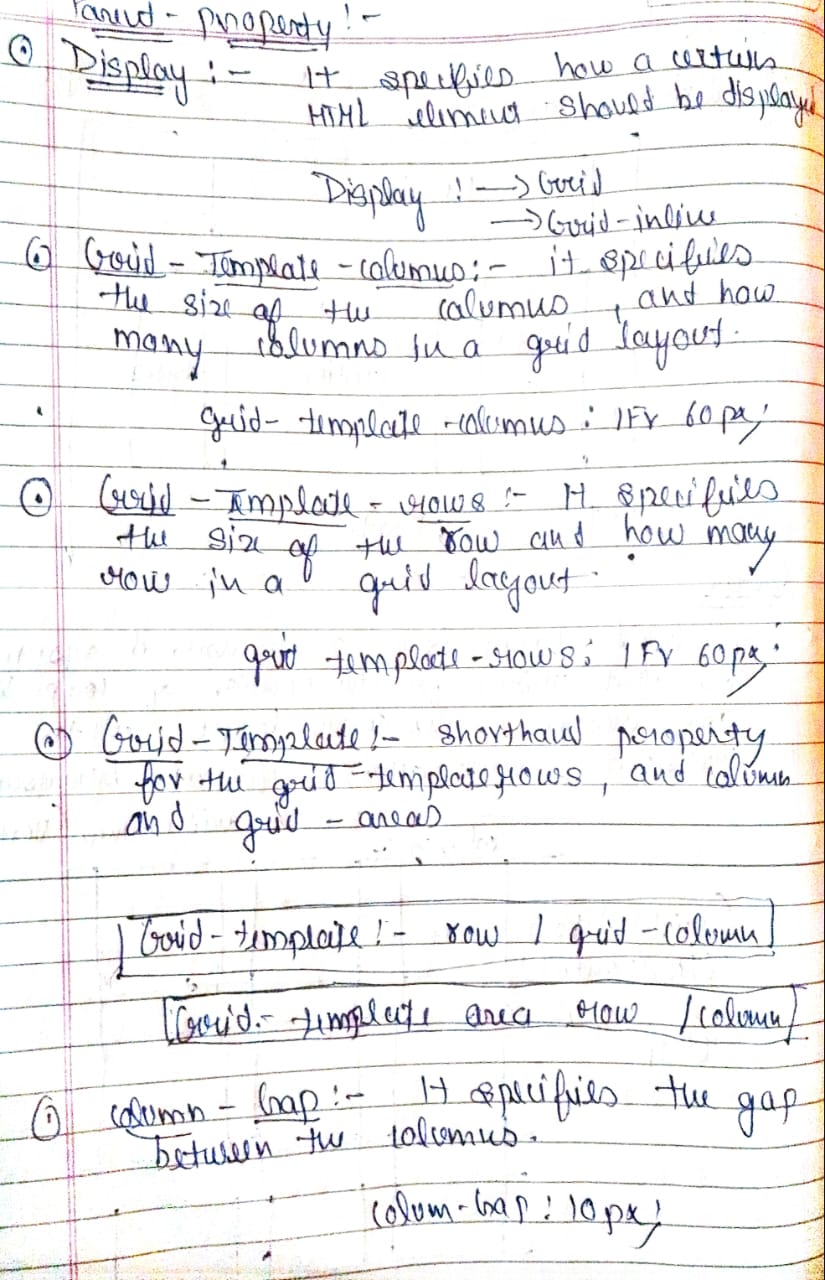 Parent - property :-
Display :- It specifies how a certain
HTML element should be displayed
Display : → Grid
→ Grid-inline
Grid - Template - columns :- it specifies
the size of the columns, and how
many columns in a grid layout.
grid- template -columns : 1Fr 60px;
Grid - Template - rows :- It specifies
the size of the row and how many
row in a grid layout.
grid template - rows : 1Fr 60px;
Grid - Template :- shorthand property
for the grid -template rows, and column
and grid - areas
Grid - template :- row / grid -column
Grid - template area row / column
column - Gap :- It specifies the gap
between the columns.
colum-Gap : 10px;